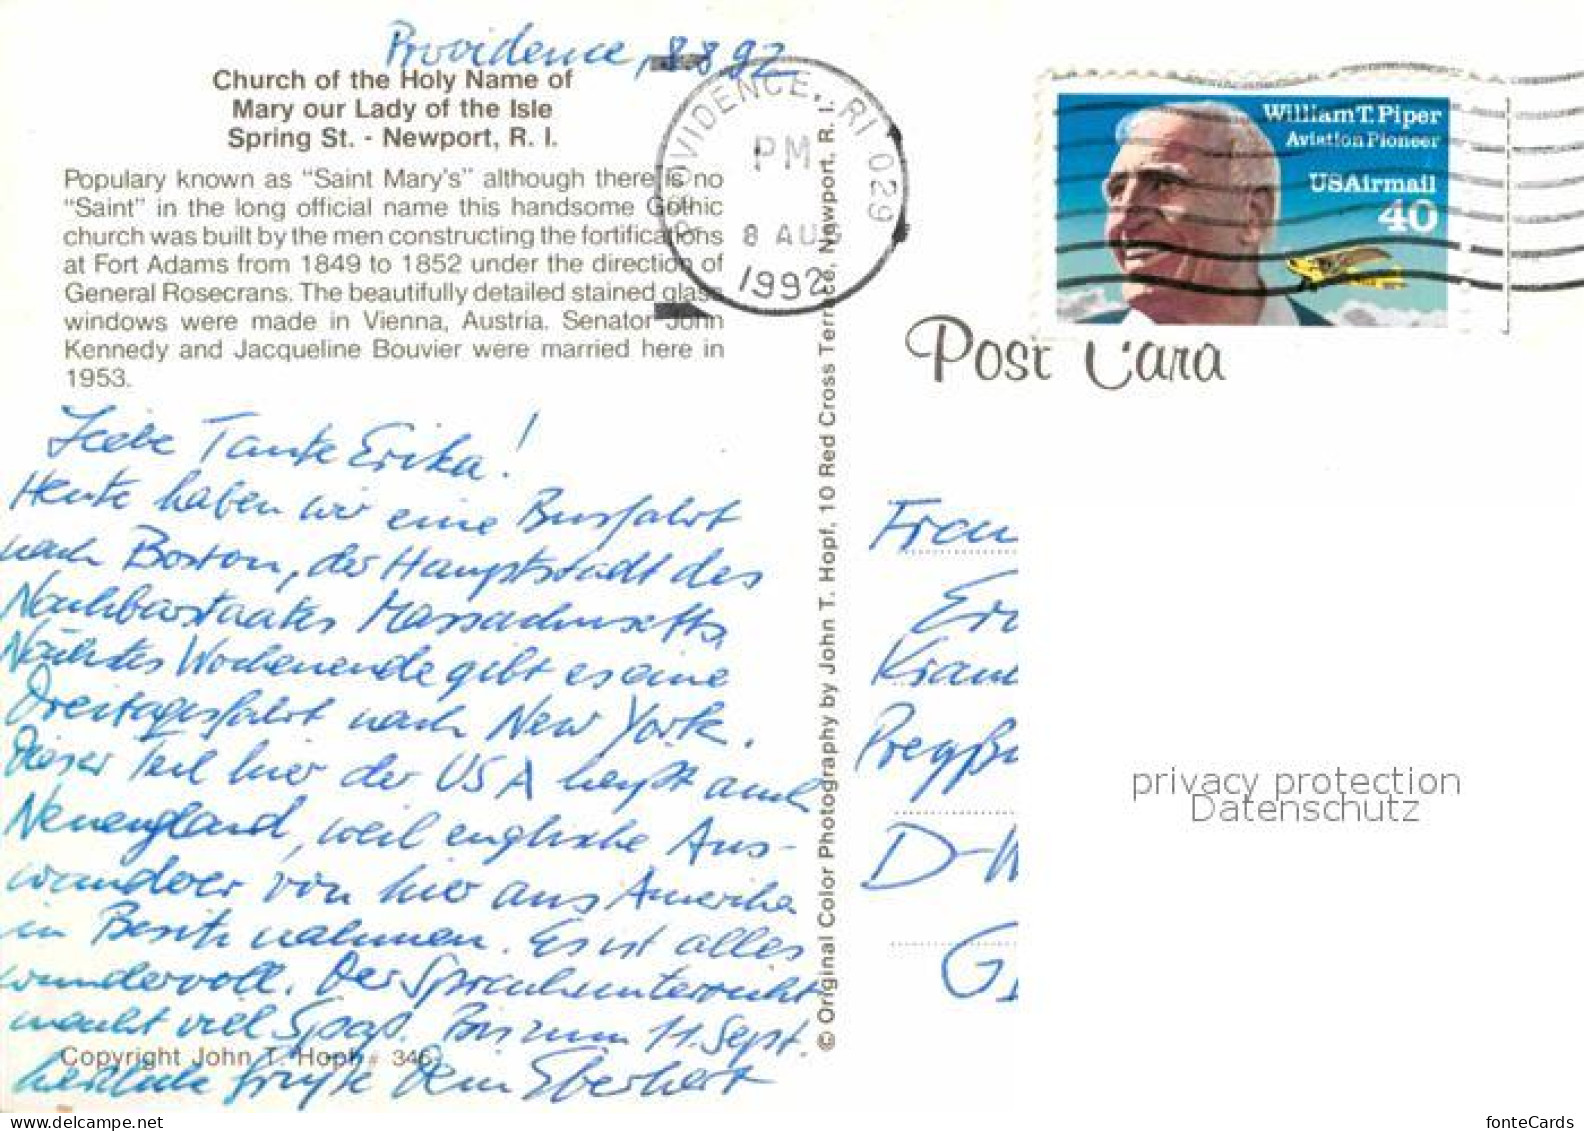 Providence, 8.8.92
Church of the Holy Name of
Mary our Lady of the Isle
Spring St. - Newport, R. I.
Populary known as “Saint Mary's” although there is no
“Saint” in the long official name this handsome Gothic
church was built by the men constructing the fortifications
at Fort Adams from 1849 to 1852 under the direction of
General Rosecrans. The beautifully detailed stained glass
windows were made in Vienna, Austria. Senator John
Kennedy and Jacqueline Bouvier were married here in
1953.
Liebe Tante Erika!
Heute haben wir eine Busfahrt
nach Boston, der Hauptstadt des
Nachbarstaates Massachusetts.
Nächstes Wochenende gibt es eine
Dreitagesfahrt nach New York.
Dieser Teil hier der USA heißt auch
Neuengland, weil englische Aus-
wanderer von hier aus Amerika
in Besitz nahmen. Es ist alles
wundervoll. Der Sprachunterricht
macht viel Spaß. Bis zum 11. Sept.
herzliche Grüße Dein Eberhert
Copyright John T. Hoph # 346
© Original Color Photography by John T. Hopf, 10 Red Cross Terrace, Newport, R. I.
PROVIDENCE, RI 029
PM
8 AUG
1992
William T. Piper
Aviation Pioneer
USAirmail
40
Post Card
Frau
Eri
Kram
D-W
privacy protection
Datenschutz
delcampe.net
fonteCards